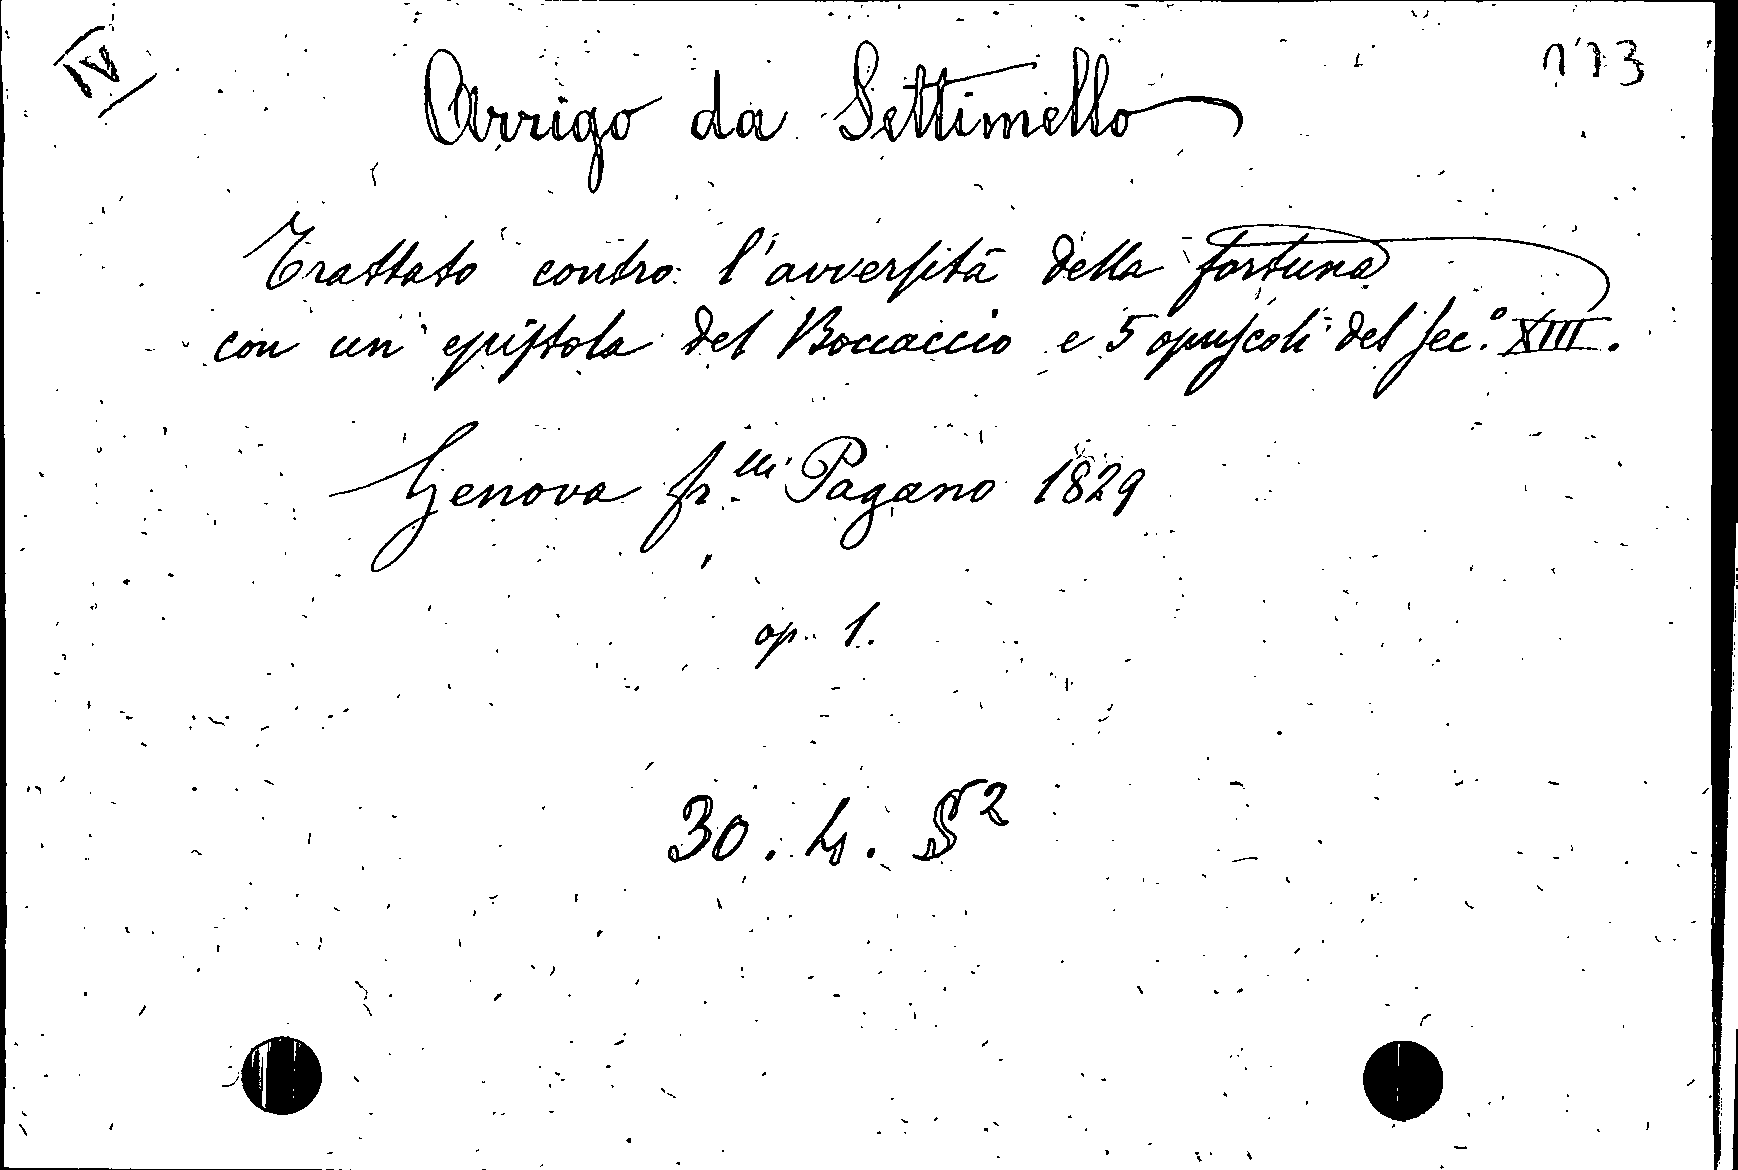 IV
173
Arrigo da Settimello
Trattato contro l'avversità della fortuna
con un epistola del Boccaccio e 5 opuscoli del sec.º XIII.
Genova fr.lli Pagano 1829
op. 1.
30. h. S²